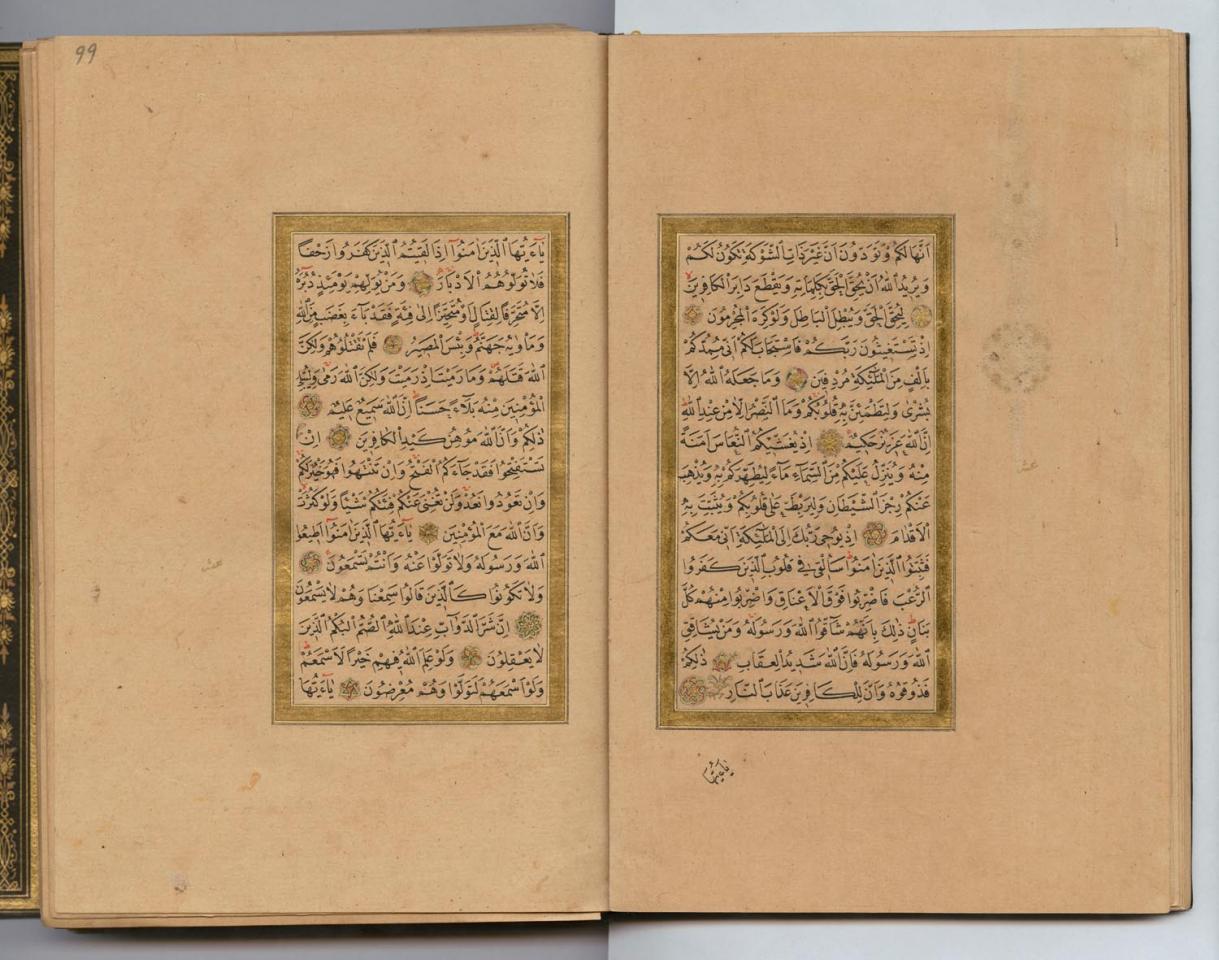 اَنَّهَا لَكُمْ وَتَوَدُّونَ اَنَّ غَيْرَ ذَاتِ الشَّوْكَةِ تَكُونُ لَكُمْ
وَيُرِيدُ اللّٰهُ اَنْ يُحِقَّ الْحَقَّ بِكَلِمَاتِهِ وَيَقْطَعَ دَابِرَ الْكَافِرِينَ
لِيُحِقَّ الْحَقَّ وَيُبْطِلَ الْبَاطِلَ وَلَوْ كَرِهَ الْمُجْرِمُونَ
اِذْ تَسْتَغِيثُونَ رَبَّكُمْ فَاسْتَجَابَ لَكُمْ اَنِّى مُمِدُّكُمْ
بِاَلْفٍ مِنَ الْمَلٰٓئِكَةِ مُرْدِفِينَ وَمَا جَعَلَهُ اللّٰهُ اِلَّا
بُشْرٰى وَلِتَطْمَئِنَّ بِهِ قُلُوبُكُمْ وَمَا النَّصْرُ اِلَّا مِنْ عِنْدِ اللّٰهِ
اِنَّ اللّٰهَ عَزِيزٌ حَكِيمٌ اِذْ يُغَشِّيكُمُ النُّعَاسَ اَمَنَةً
مِنْهُ وَيُنَزِّلُ عَلَيْكُمْ مِنَ السَّمَاءِ مَاءً لِيُطَهِّرَكُمْ بِهِ وَيُذْهِبَ
عَنْكُمْ رِجْزَ الشَّيْطَانِ وَلِيَرْبِطَ عَلٰى قُلُوبِكُمْ وَيُثَبِّتَ بِهِ
الْاَقْدَامَ اِذْ يُوحِى رَبُّكَ اِلَى الْمَلٰٓئِكَةِ اَنِّى مَعَكُمْ
فَثَبِّتُوا الَّذِينَ اٰمَنُوا سَاُلْقِى فِى قُلُوبِ الَّذِينَ كَفَرُوا
الرُّعْبَ فَاضْرِبُوا فَوْقَ الْاَعْنَاقِ وَاضْرِبُوا مِنْهُمْ كُلَّ
بَنَانٍ ذٰلِكَ بِاَنَّهُمْ شَاقُّوا اللّٰهَ وَرَسُولَهُ وَمَنْ يُشَاقِقِ
اللّٰهَ وَرَسُولَهُ فَاِنَّ اللّٰهَ شَدِيدُ الْعِقَابِ ذٰلِكُمْ
فَذُوقُوهُ وَاَنَّ لِلْكَافِرِينَ عَذَابَ النَّارِ
يَاءَيُّهَا
99
يَاءَيُّهَا الَّذِينَ اٰمَنُوا اِذَا لَقِيتُمُ الَّذِينَ كَفَرُوا زَحْفًا
فَلَا تُوَلُّوهُمُ الْاَدْبَارَ وَمَنْ يُوَلِّهِمْ يَوْمَئِذٍ دُبُرَهُ
اِلَّا مُتَحَرِّفًا لِقِتَالٍ اَوْ مُتَحَيِّزًا اِلٰى فِئَةٍ فَقَدْ بَاءَ بِغَضَبٍ مِنَ اللّٰهِ
وَمَاْوٰيهُ جَهَنَّمُ وَبِئْسَ الْمَصِيرُ فَلَمْ تَقْتُلُوهُمْ وَلٰكِنَّ
اللّٰهَ قَتَلَهُمْ وَمَا رَمَيْتَ اِذْ رَمَيْتَ وَلٰكِنَّ اللّٰهَ رَمٰى وَلِيُبْلِىَ
الْمُؤْمِنِينَ مِنْهُ بَلَاءً حَسَنًا اِنَّ اللّٰهَ سَمِيعٌ عَلِيمٌ
ذٰلِكُمْ وَاَنَّ اللّٰهَ مُوهِنُ كَيْدِ الْكَافِرِينَ اِنْ
تَسْتَفْتِحُوا فَقَدْ جَاءَكُمُ الْفَتْحُ وَاِنْ تَنْتَهُوا فَهُوَ خَيْرٌ لَكُمْ
وَاِنْ تَعُودُوا نَعُدْ وَلَنْ تُغْنِىَ عَنْكُمْ فِئَتُكُمْ شَيْئًا وَلَوْ كَثُرَتْ
وَاَنَّ اللّٰهَ مَعَ الْمُؤْمِنِينَ يَاءَيُّهَا الَّذِينَ اٰمَنُوا اَطِيعُوا
اللّٰهَ وَرَسُولَهُ وَلَا تَوَلَّوْا عَنْهُ وَاَنْتُمْ تَسْمَعُونَ
وَلَا تَكُونُوا كَالَّذِينَ قَالُوا سَمِعْنَا وَهُمْ لَا يَسْمَعُونَ
اِنَّ شَرَّ الدَّوَابِّ عِنْدَ اللّٰهِ الصُّمُّ الْبُكْمُ الَّذِينَ
لَا يَعْقِلُونَ وَلَوْ عَلِمَ اللّٰهُ فِيهِمْ خَيْرًا لَاَسْمَعَهُمْ
وَلَوْ اَسْمَعَهُمْ لَتَوَلَّوْا وَهُمْ مُعْرِضُونَ يَاءَيُّهَا